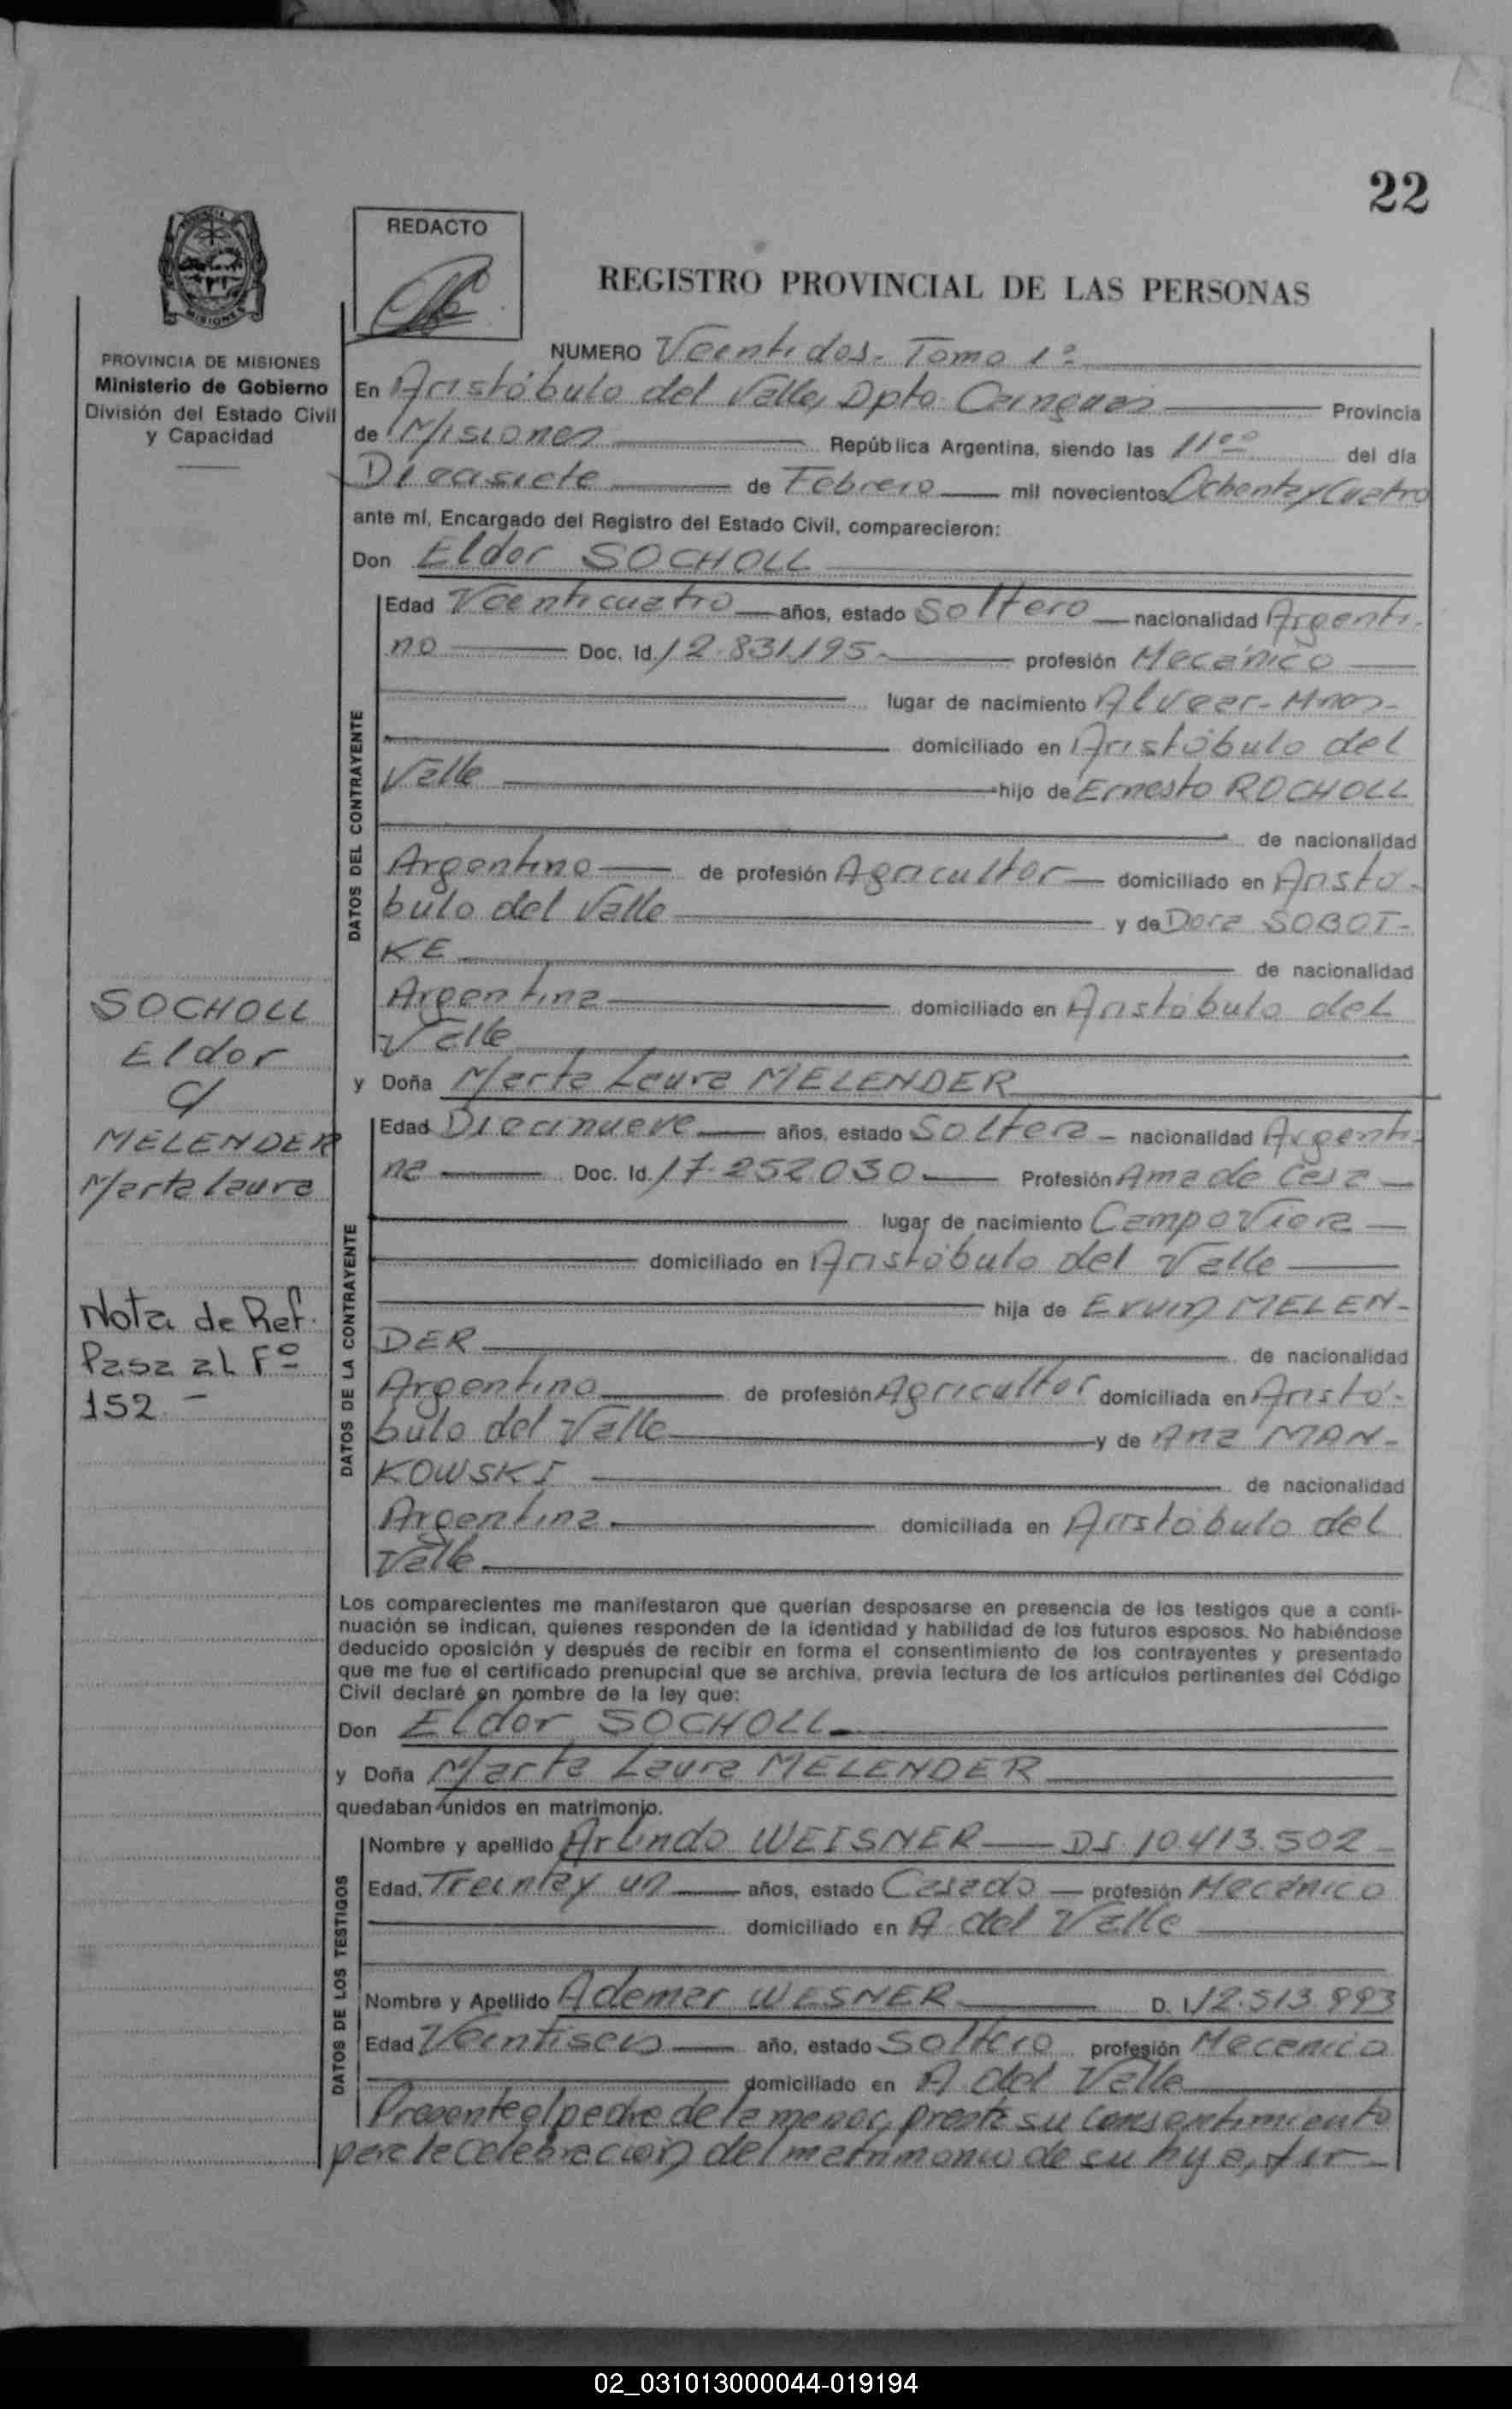 22
REDACTO
REGISTRO PROVINCIAL DE LAS PERSONAS
MISIONES
PROVINCIA DE MISIONES
Ministerio de Gobierno
División del Estado Civil
y Capacidad
NUMERO Veintidos- Tomo 1º
En Aristóbulo del Valle, Dpto Cainguas Provincia
de Misiones República Argentina, siendo las 11ºº del día
Diecisiete de Febrero mil novecientos Ochenta y Cuatro
ante mí, Encargado del Registro del Estado Civil, comparecieron:
Don Eldor SOCHOLL
DATOS DEL CONTRAYENTE
Edad Veinticuatro años, estado Soltero nacionalidad Argenti-
no Doc. Id. 12.831.195 profesión Mecánico
lugar de nacimiento Alvear- Mnes-
domiciliado en Aristóbulo del
Valle hijo de Ernesto ROCHOLL
de nacionalidad
Argentino de profesión Agricultor domiciliado en Aristó-
bulo del Valle y de Dora SOBOT-
KE de nacionalidad
Argentina domiciliado en Aristóbulo del
Valle
SOCHOLL
Eldor
c/
MELENDER
Marta Laura
Nota de Ref.
Pasa al Fº
152 -
y Doña Marta Laura MELENDER
DATOS DE LA CONTRAYENTE
Edad Diecinueve años, estado Soltera - nacionalidad Argenti-
na Doc. Id. 17.252.030 Profesión Ama de Casa
lugar de nacimiento Campo Viera
domiciliado en Aristóbulo del Valle
hija de Ervin MELEN-
DER de nacionalidad
Argentino de profesión Agricultor domiciliada en Aristó-
bulo del Valle y de Ana MAN-
KOWSKI de nacionalidad
Argentina domiciliada en Aristóbulo del
Valle
Los comparecientes me manifestaron que querían desposarse en presencia de los testigos que a conti-
nuación se indican, quienes responden de la identidad y habilidad de los futuros esposos. No habiéndose
deducido oposición y después de recibir en forma el consentimiento de los contrayentes y presentado
que me fue el certificado prenupcial que se archiva, previa lectura de los artículos pertinentes del Código
Civil declaré en nombre de la ley que:
Don Eldor SOCHOLL
y Doña Marta Laura MELENDER
quedaban unidos en matrimonio.
DATOS DE LOS TESTIGOS
Nombre y apellido Arlindo WEISNER DI. 10.413.502
Edad. Treinta y un años, estado Casado profesión Mecánico
domiciliado en A. del Valle
Nombre y Apellido Ademar WESNER D. I. 12.513.993
Edad Veintiseis año, estado Soltero profesión Mecanico
domiciliado en A del Valle
Presente el padre de la menor, presta su consentimiento
para la celebración del matrimonio de su hija, fir-
02_031013000044-019194